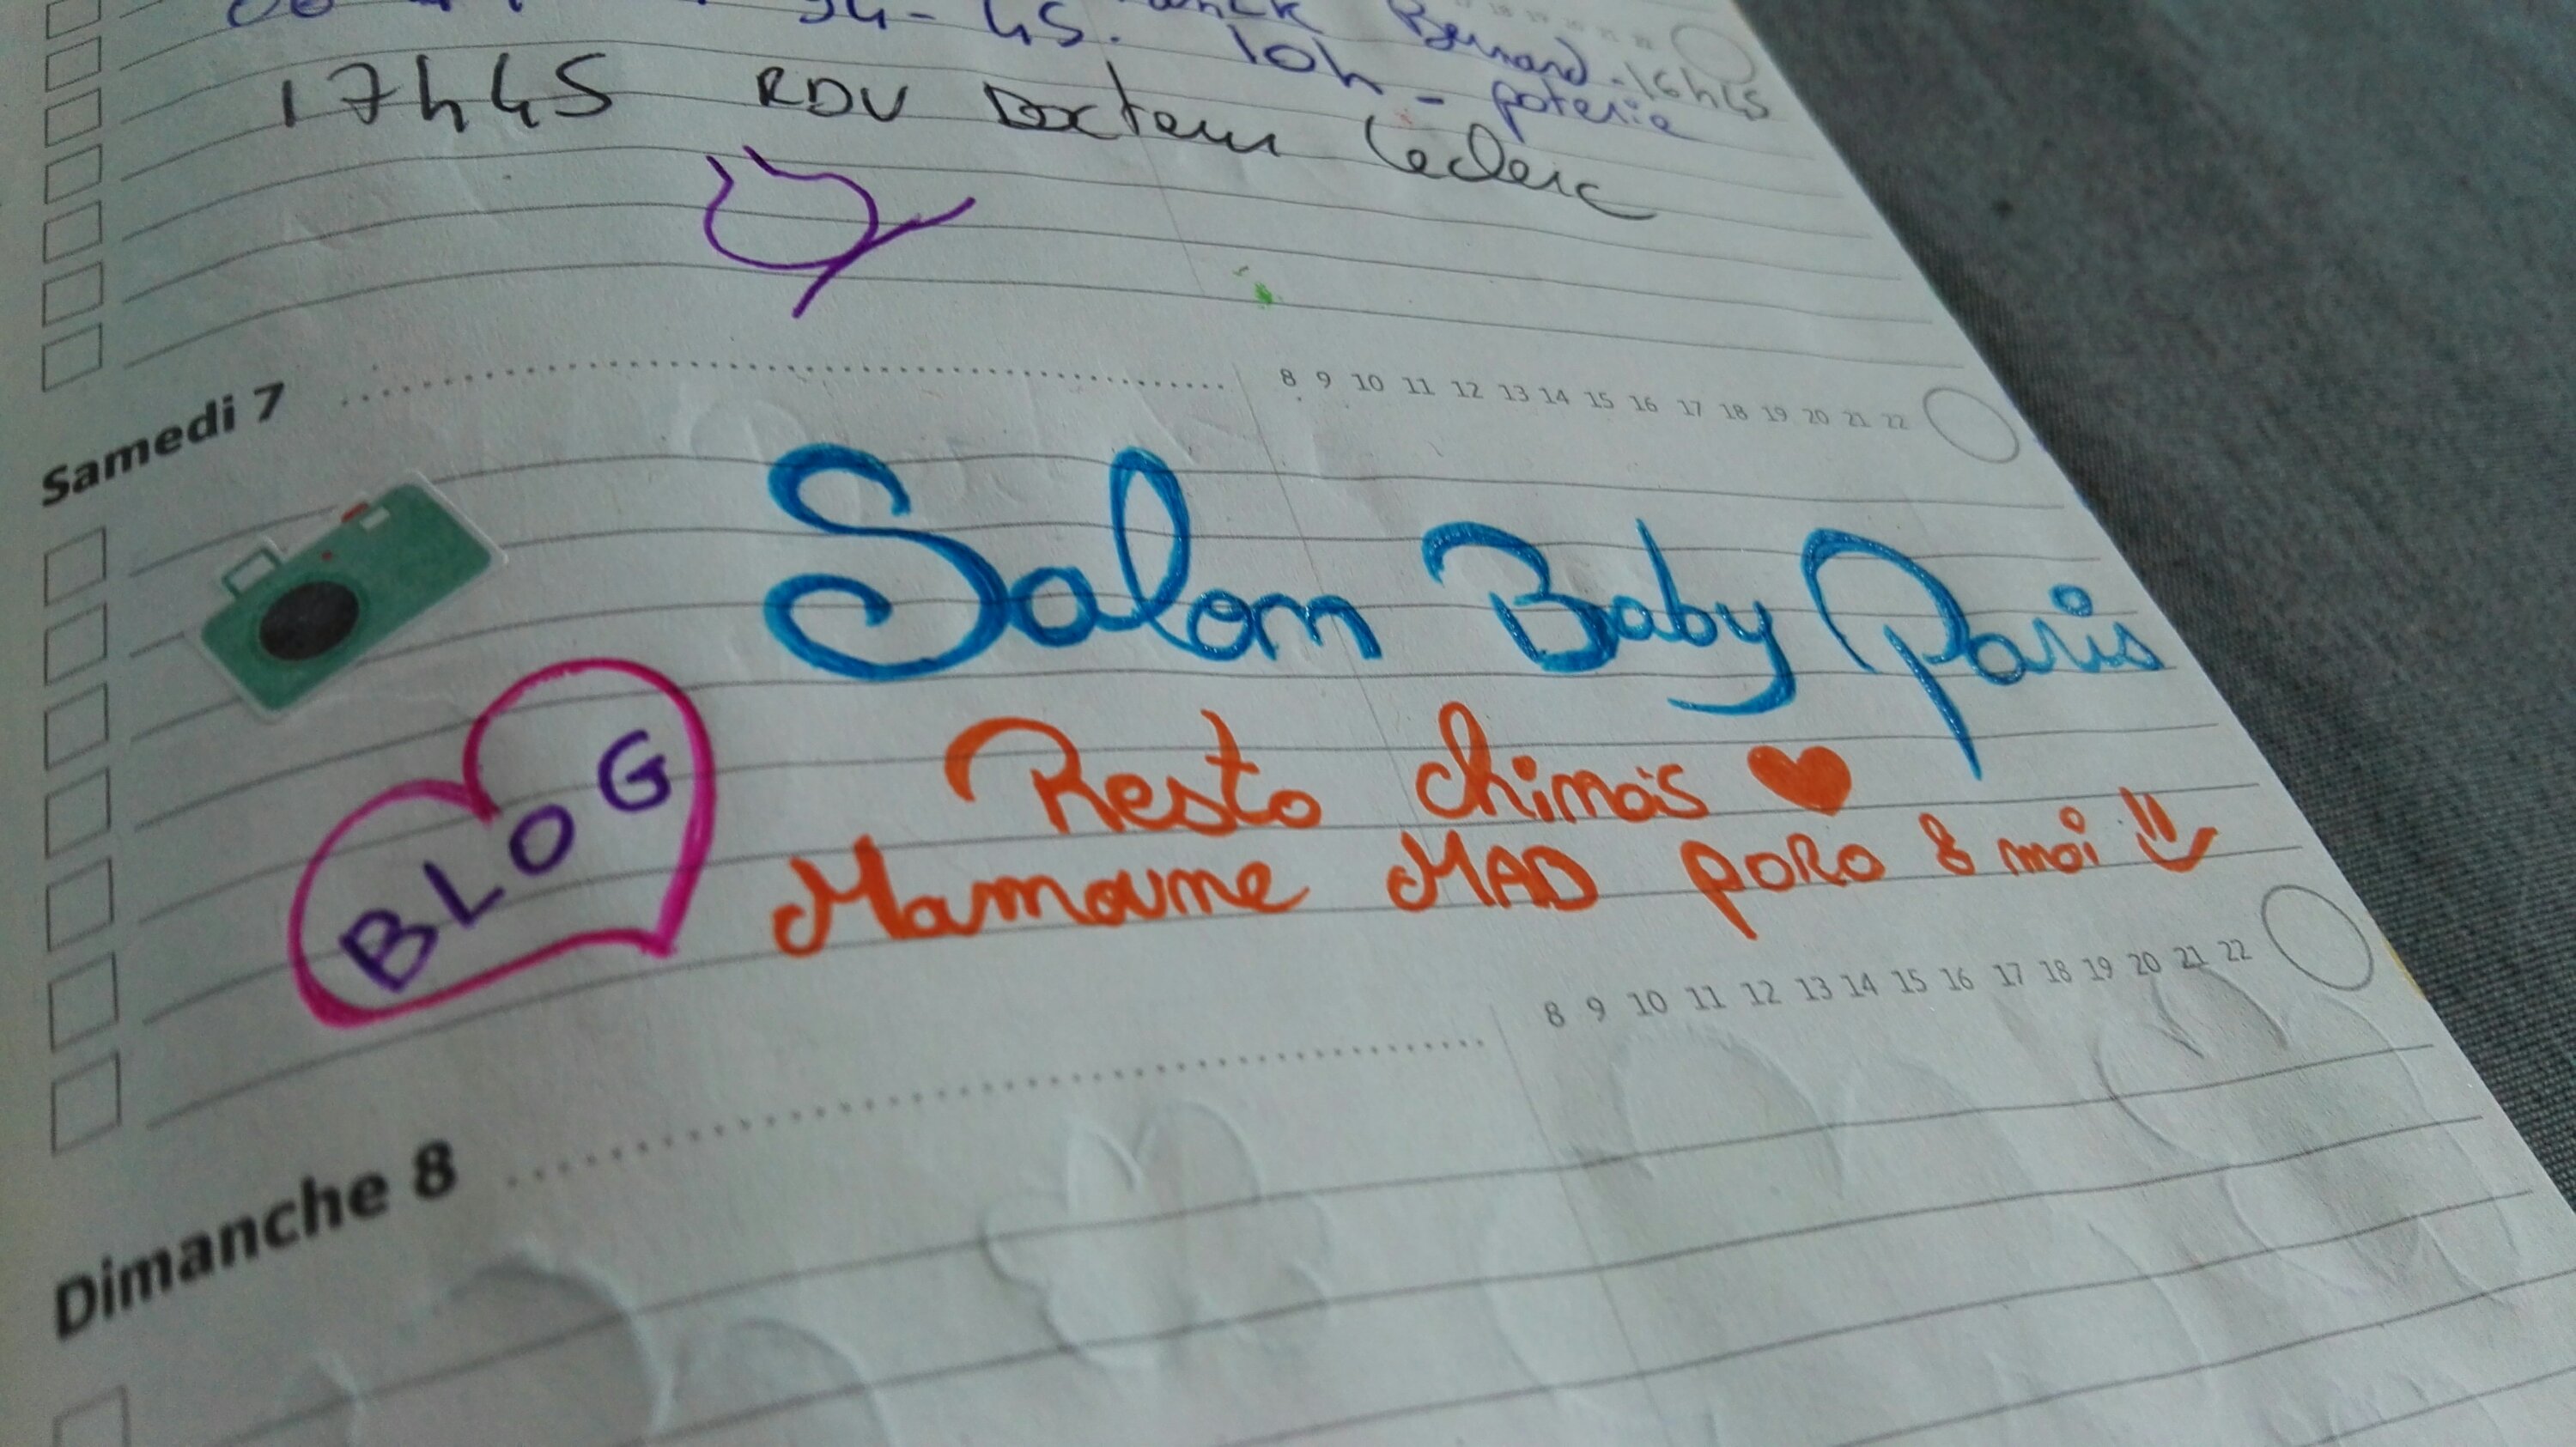 Bernard - 16h45
94-45. 10h - poterie
17h45 RDV Docteur Leclerc
Samedi 7
8 9 10 11 12 13 14 15 16 17 18 19 20 21 22
Salon Baby Paris
BLOG
Resto chinois ♥
Mamoune MAD PORO & moi
8 9 10 11 12 13 14 15 16 17 18 19 20 21 22
Dimanche 8